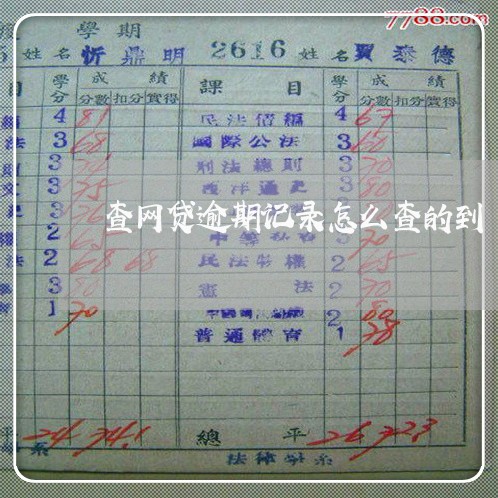 7788.com
學期
5 姓名 忻鼎明 2616 姓名 賈泰德
目 學分 成績 課目 學分 成績
分數 扣分 實得 分數 扣分 實得
4 81 民法債編 4 67
法 3 68 國際公法 3 60
3 刑法總則 3 70
3 75 西洋通史 3 80
3
查网贷逾期记录怎么查的到
2 65 70
法 2 68 68 民法物權 2 65
3 80 憲法 2 70
1 70 2 80
普通體育 1 78
平 24 74.1 總平 26 72.3
系 法律學系